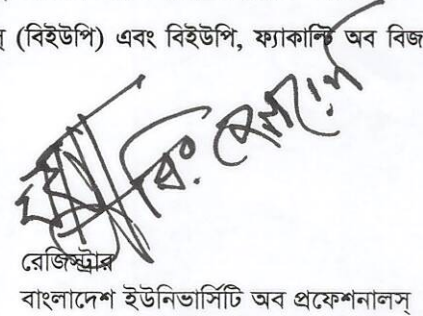 (বিইউপি) এবং বিইউপি, ফ্যাকাল্টি অব বিজ
ব্রিঃ জেনারেল
রেজিস্ট্রার
বাংলাদেশ ইউনিভার্সিটি অব প্রফেশনালস্